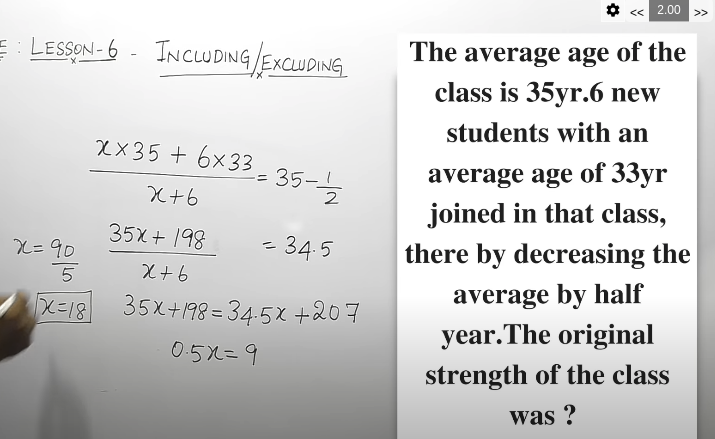 << 2.00 >>
E : LESSON-6 - INCLUDING/EXCLUDING
x×35 + 6×33
x+6
= 35-1/2
35x+198
x+6
= 34.5
35x+198=34.5x+207
0.5x=9
x=90
5
x=18
The average age of the
class is 35yr.6 new
students with an
average age of 33yr
joined in that class,
there by decreasing the
average by half
year.The original
strength of the class
was ?